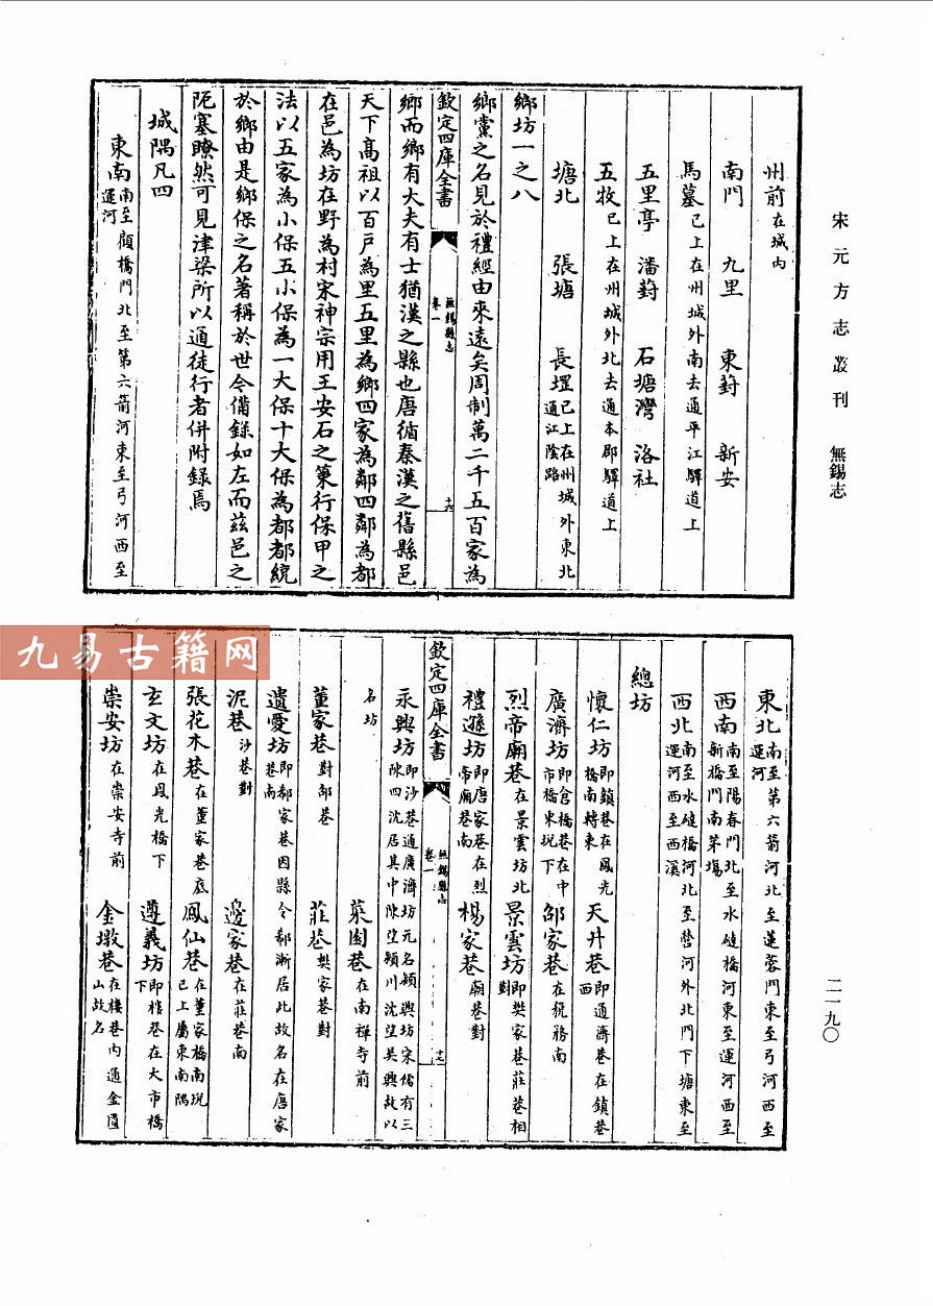 宋元方志叢刊 無錫志
二一九〇
州前在城内
南門 九里 東葑 新安
馬墓已上在州城外南去通平江驛道上
五里亭 潘葑 石塘灣 洛社
五牧已上在州城外北去通本郡驛道上
塘北 張塘 長堽已上在州城外東北通江陰路
鄉坊一之八
鄉黨之名見於禮經由來遠矣周制萬二千五百家為
欽定四庫全書 無錫縣志 卷一 十六
鄉而鄉有大夫有士猶漢之縣也唐循秦漢之舊縣邑
天下高祖以百戶為里五里為鄉四家為鄰四鄰為都
在邑為坊在野為村宋神宗用王安石之策行保甲之
法以五家為小保五小保為一大保十大保為都都統
於鄉由是鄉保之名著稱於世今備録如左而茲邑之
阨塞瞭然可見津梁所以通徒行者併附録焉
城隅凡四
東南南至顧橋門北至第六箭河東至弓河西至運河
東北南至第六箭河北至蓮蓉門東至弓河西至運河
西南南至陽春門北至水磑橋河東至運河西至新橋門南菜場
西北南至水磑橋河北至營河外北門下塘東至運河西至西溪
總坊
懷仁坊即鎖巷在鳳光橋南轉東 天井巷即通濟巷在鎮巷西
廣濟坊即倉橋巷在中市橋東堍下 邵家巷在稅務南
烈帝廟巷在景雲坊北 景雲坊即樊家巷莊巷相對
禮遜坊即唐家巷在烈帝廟巷南 楊家巷廟巷對
欽定四庫全書 無錫縣志 卷一 十七
永興坊即沙巷通廣濟坊元名潁興坊宋儒有三陳四沈居其中陳望潁川沈望吳興故以
名坊 菜園巷在南禪寺前
董家巷對邵巷 莊巷樊家巷對
遺愛坊即郝家巷因縣令郝漸居此故名在唐家巷南
泥巷沙巷對 邊家巷在莊巷南
張花木巷在董家巷底 鳳仙巷在董家橋南堍已上屬東南隅
玄文坊在鳳光橋下 遵義坊即棺巷在大市橋下
崇安坊在崇安寺前 金墩巷在樓巷内通金匱山故名
九易古籍网